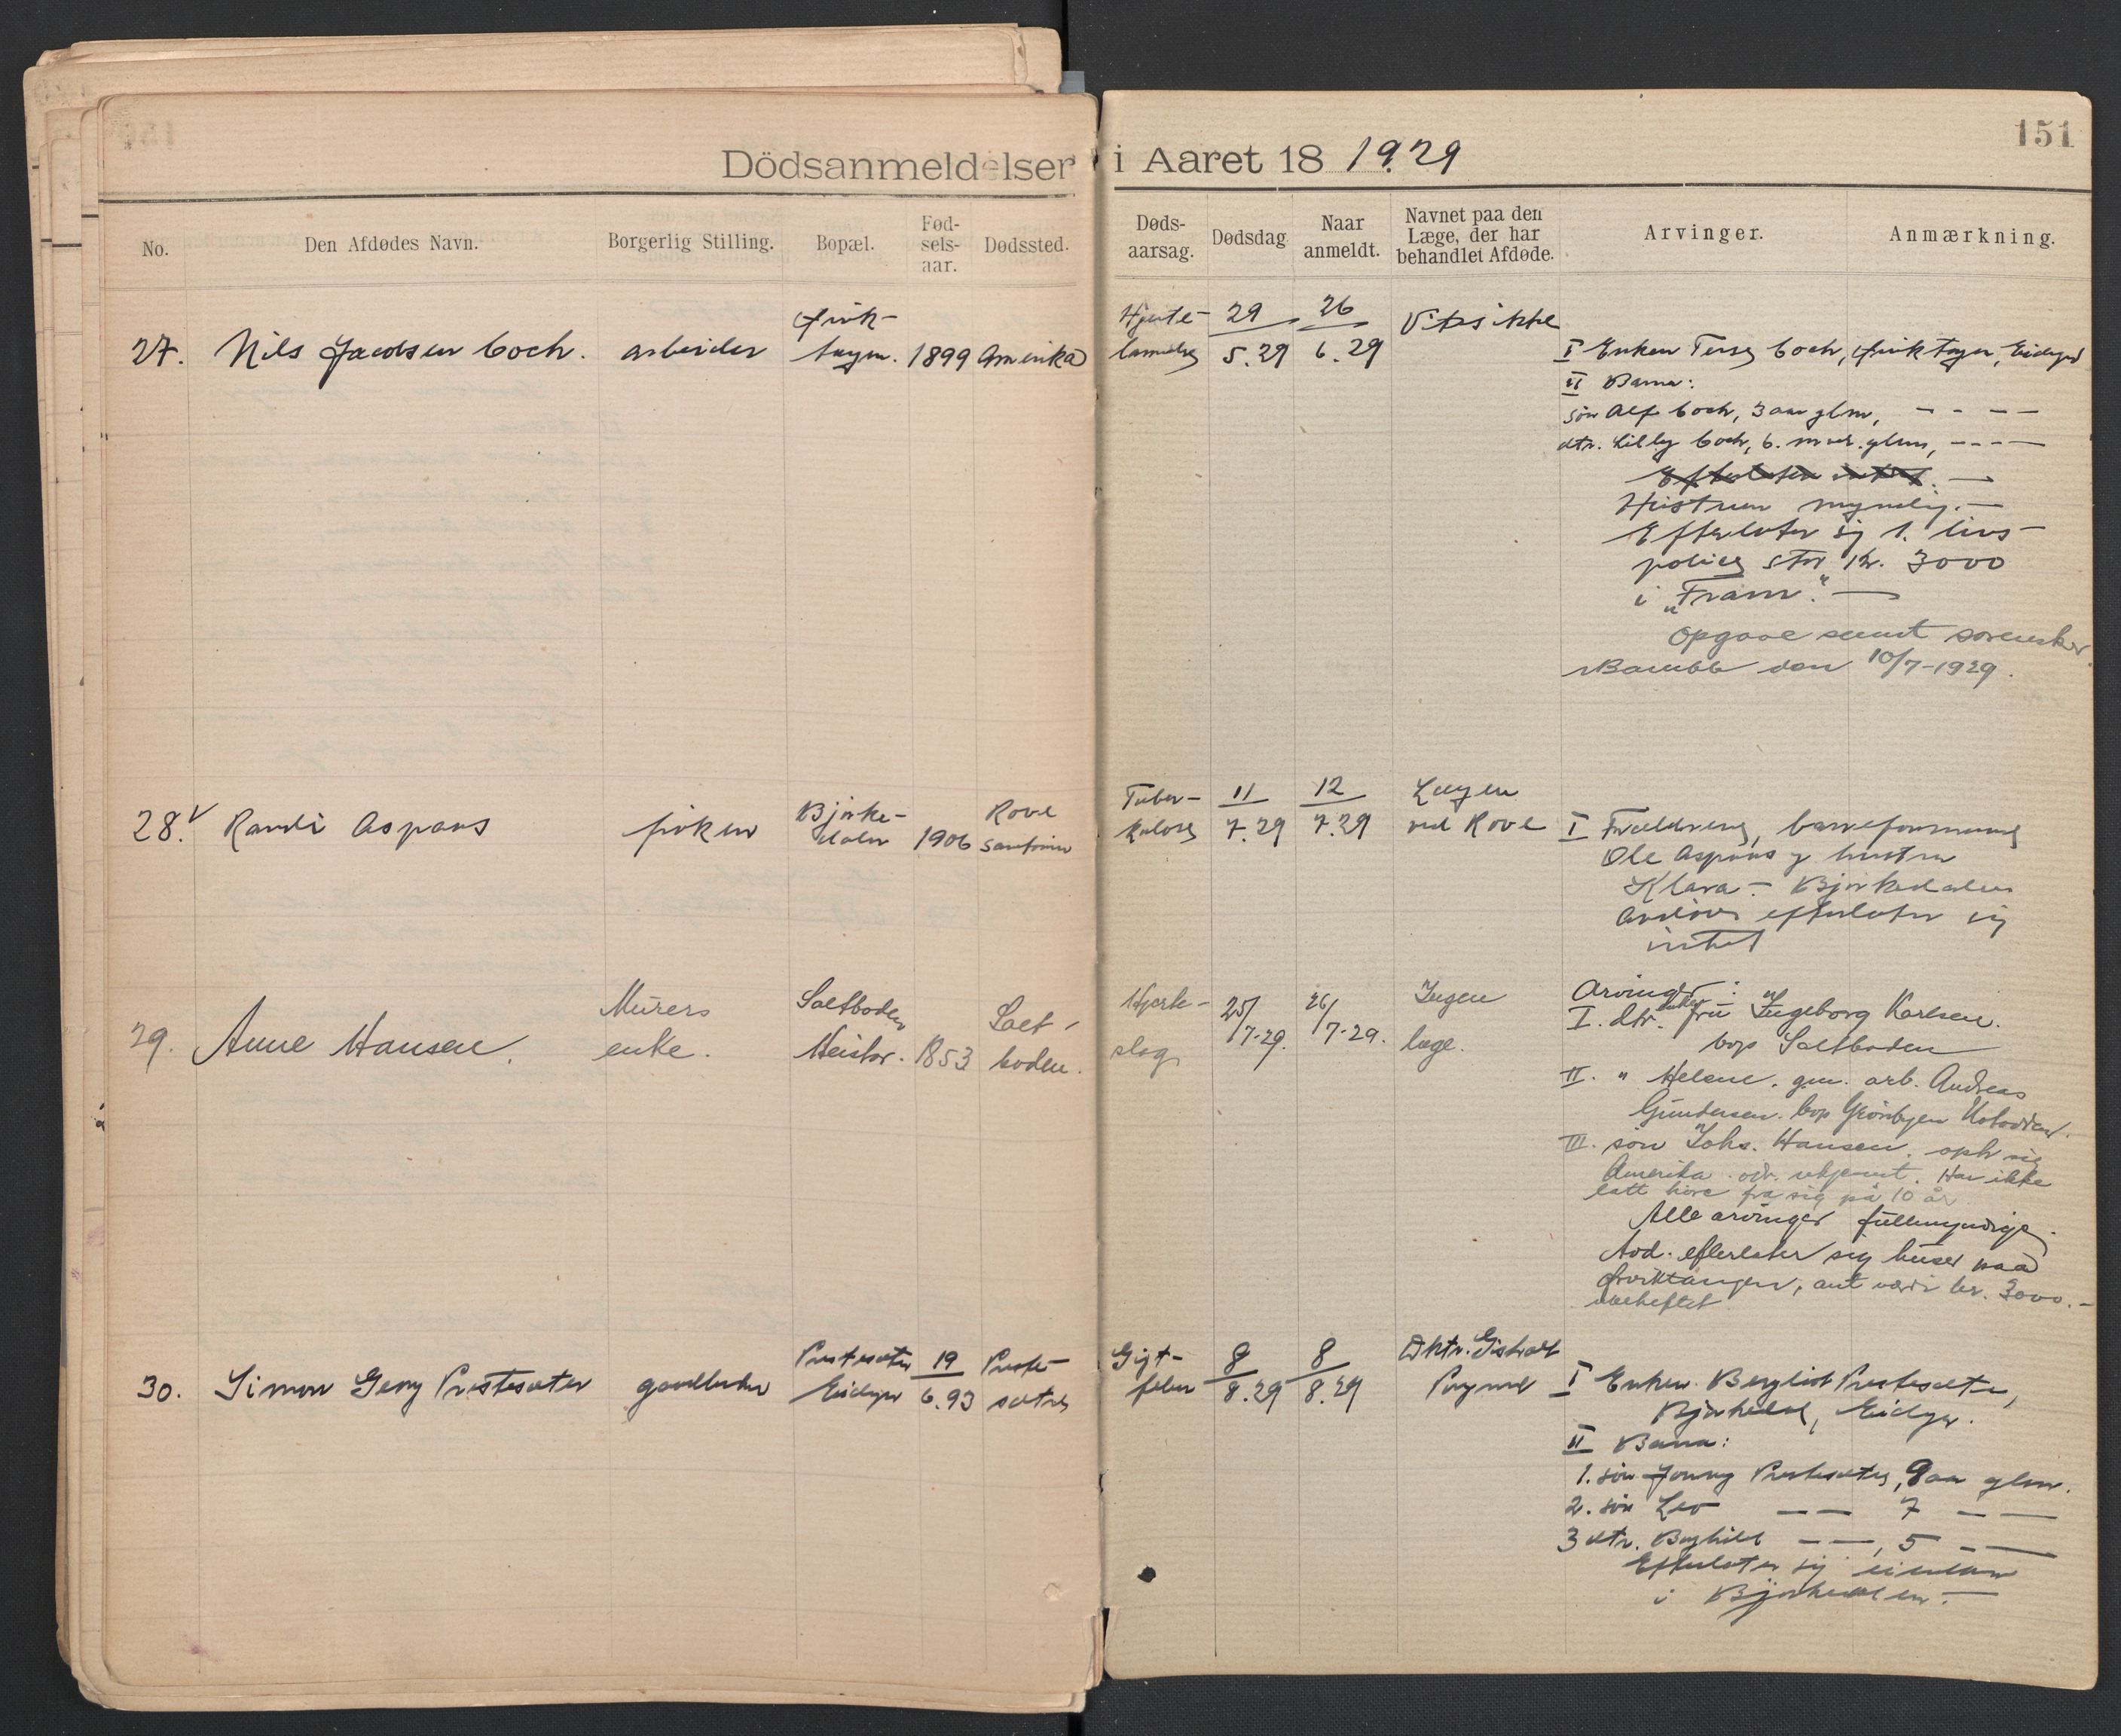 151
Dödsanmeldelser i Aaret 18 1929
No.
Den Afdødes Navn.
Borgerlig Stilling.
Bopæl.
Fød-
sels-
aar.
Dødssted.
Døds-
aarsag.
Dødsdag
Naar
anmeldt.
Navnet paa den
Læge, der har
behandlet Afdøde.
Arvinger.
Anmærkning.
27. Nils Jacobsen Coch. arbeider
tangen. 1899 Amerika
Hjerte-
lammelse
29
5.29
26
6.29
Vites ikke
I Enken Coch, Eidanger
II Barna:
søn Alf Coch, 3 aar glm, - - - -
dtr. Lilly Coch, 6. mdr. glm, - - - -
Efterlater intet. —
Hustruen myndig. —
Efterlater sig 1. livs-
police stor kr. 3000
i „Fram". —
Opgave sendt sorenskr.
Bamble den 10/7-1929.
28. Randi Aspaas piken
Bjørke-
dalen
1906
Rove
Tuber-
kulose
11
7.29
12
7.29
Lægen
ved Rove
I Forældrene,
Ole Aspaas og hustru
Klara - Bjørkedalen
Avdøde efterlater sig
intet
29. Anne Hansen.
Murers
enke.
Saltboden
Heistar.
1853
Salt-
boden.
Hjerte-
slag
25/
7-29.
26/
7-29.
Ingen
læge.
Arvinger:
I. dtr. enkefru Ingeborg Karlsen.
bop Saltboden
II. " Helene. gm. arb. Andreas
Gundersen. bop Notodden.
III. søn Johs. Hansen. oph sig
Amerika. adr. ubekjent. Har ikke
latt høre fra sig på 10 år
Alle arvinger fullmyndige.
Avd. efterlater sig huset paa
ant værdi kr. 3000.-
ubeheftet
30. Simon Georg Prestesæter gaardbruker
Prestesæter
Eidanger
19
6.93
Preste-
sætre
Gigt-
feber
8
8.29
8
8.29
Dktr. Gisholt
I Enken Bergliot Prestesæter,
Bjørkedal, Eidanger.
II Barna:
1. søn Jonny Prestesæter, 9 aar glm.
2. søn Leo — — 7 — —
3 dtr. Borghild — —, 5 — —
Efterlater sig eiendom
i Bjørkedalen. —